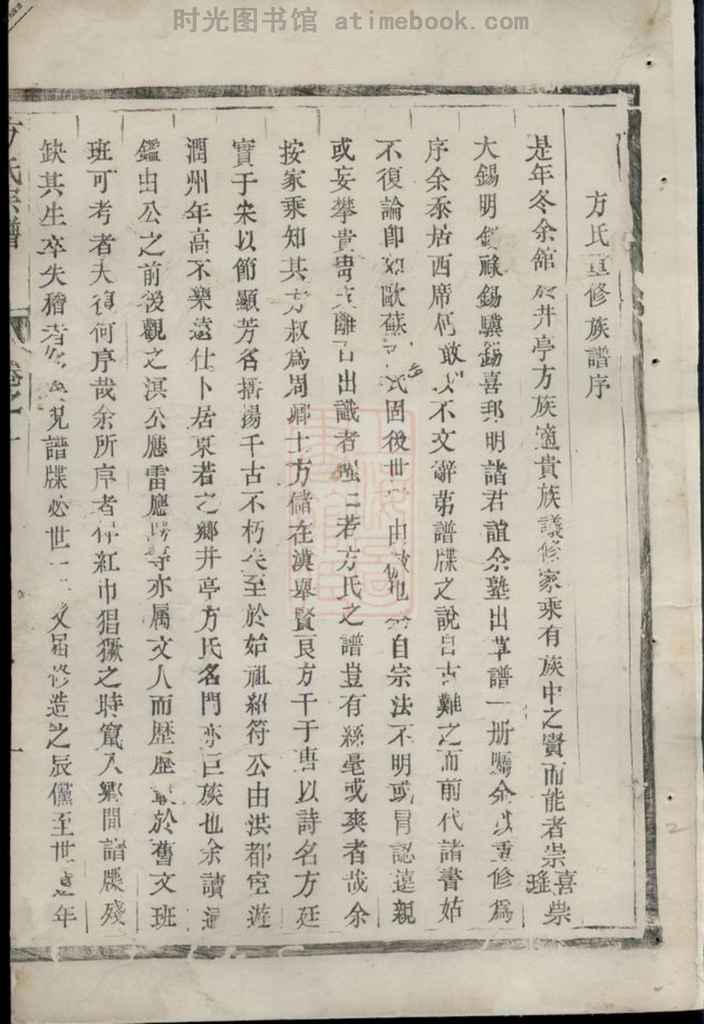 时光图书馆 - atimebook.com
方氏重修族譜序
是年冬余館於井亭方族適貴族議修家乘有族中之賢而能者崇喜崇瑤
大錫明錫祿錫驥錫喜邦明諸君誼余塾出草譜一册囑余以重修爲
序余忝居西席何敢以不文辭第譜牒之說自古難之而前代諸書姑
不復論即如歐蘇氏固後世由倣也自宗法不明或冒認遠親
或妄攀貴胄支離百出識者若方氏之譜豈有絲毫或爽者哉余
按家乘知其方叔爲周卿士方儲在漢舉賢良方干于唐以詩名方廷
實于宋以節顯芳名播揚千古不朽矣至於始祖紹符公由洪都宦遊
潤州年高不樂遠仕卜居東若之鄉井亭方氏名門亦巨族也余讀
鑑由公之前後觀之淇公應雷應等亦屬文人而歷歷於舊文班
班可考者夫復何序哉余所序者紅巾猖獗之時竄入鄉間譜牒殘
缺其生卒失稽者譜牒必世一修造之辰儻至世年
方氏宗譜